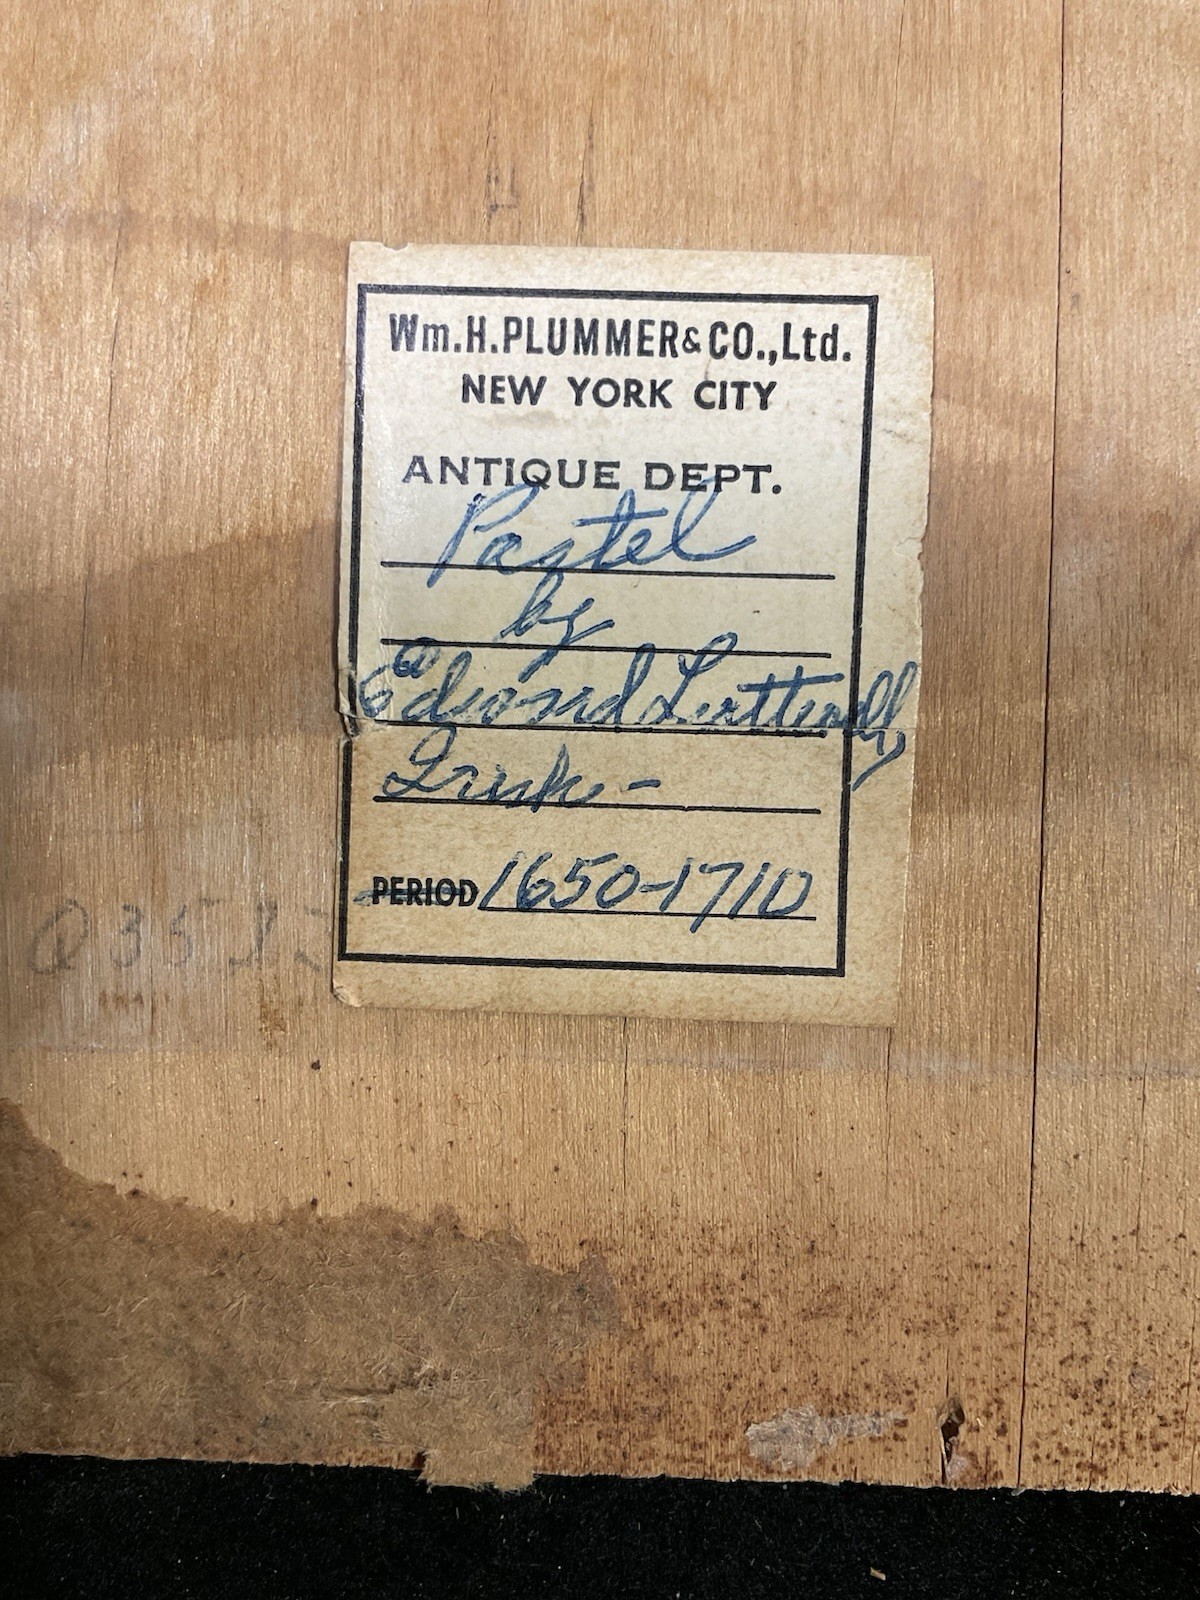 Wm.H.PLUMMER&CO.,Ltd.
NEW YORK CITY
ANTIQUE DEPT.
Pastel
by
Edward Luttrell,
Irish -
PERIOD 1650-1710